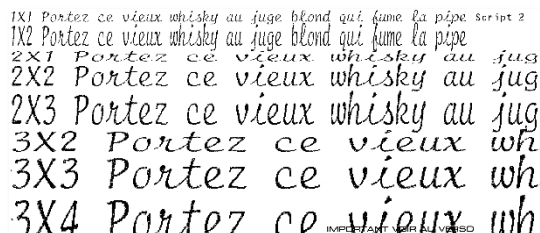 1X1 Portez ce vieux whisky au juge blond qui fume la pipe Script 2
1X2 Portez ce vieux whisky au juge blond qui fume la pipe
2X1 Portez ce vieux whisky au jug
2X2 Portez ce vieux whisky au jug
2X3 Portez ce vieux whisky au jug
3X2 Portez ce vieux wh
3X3 Portez ce vieux wh
3X4 Portez ce vieux wh
IMPORTANT VOIR AU VERSO